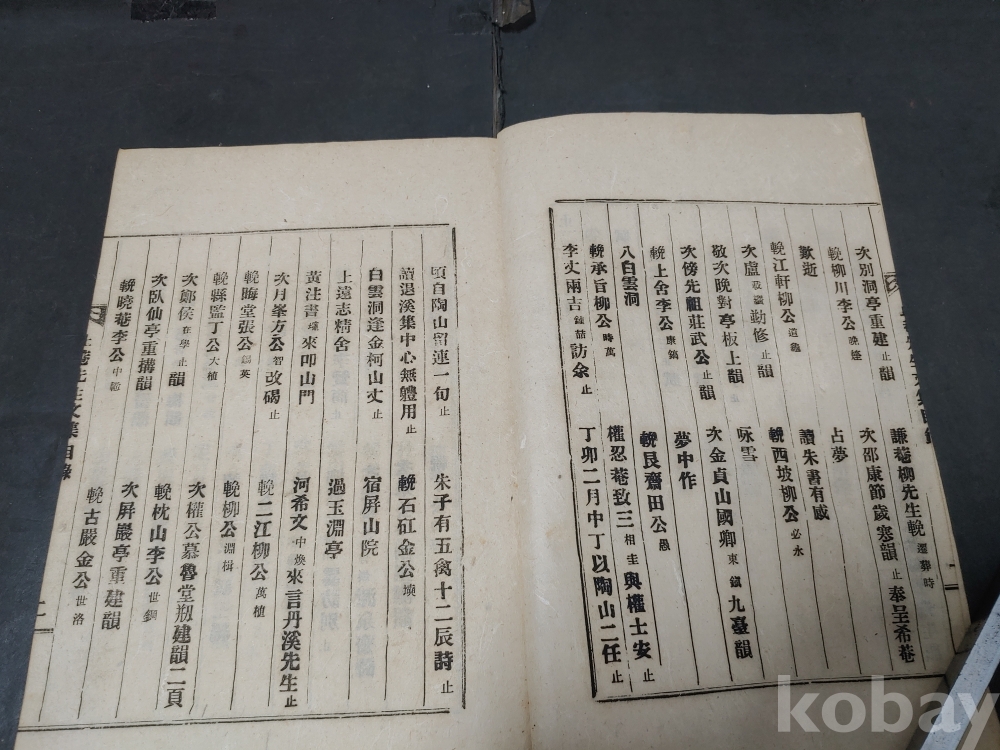 次別洞亭重建止韻
謙菴柳先生輓遷葬時
輓柳川李公晚煃
次邵康節歲寒韻止奉呈希菴
歎逝
占夢
輓江軒柳公道龜
讀朱書有感
次盧勤修止韻
輓西坡柳公必永
敬次晚對亭板上韻
咏雪
次傍先祖莊武公止韻
次金貞山國卿東鎭九臺韻
輓上舍李公康鎬
夢中作
八白雲洞
輓艮齋田公愚
輓承旨柳公時萬
權忍菴致三相圭與權士安止
李丈兩吉鍾喆訪余止
丁卯二月中丁以陶山二任止
頃自陶山留連一旬止
朱子有五禽十二辰詩止
讀退溪集中心無體用止
輓石矼金公
白雲洞逢金柯山丈止
宿屛山院
上遠志精舍
過玉淵亭
黃注書來叩山門
河希文中煥來言丹溪先生止
次月峯方公智改碣止
輓二江柳公萬植
輓晦堂張公錫英
輓柳公淵楫
輓縣監丁公大植
次權公慕魯堂瓶建韻二頁
次鄭侯在學止韻
輓枕山李公世鋼
次臥仙亭重搆韻
次屛巖亭重建韻
輓曉菴李公中
輓古巖金公世洛
先生文集目錄
二
kobay